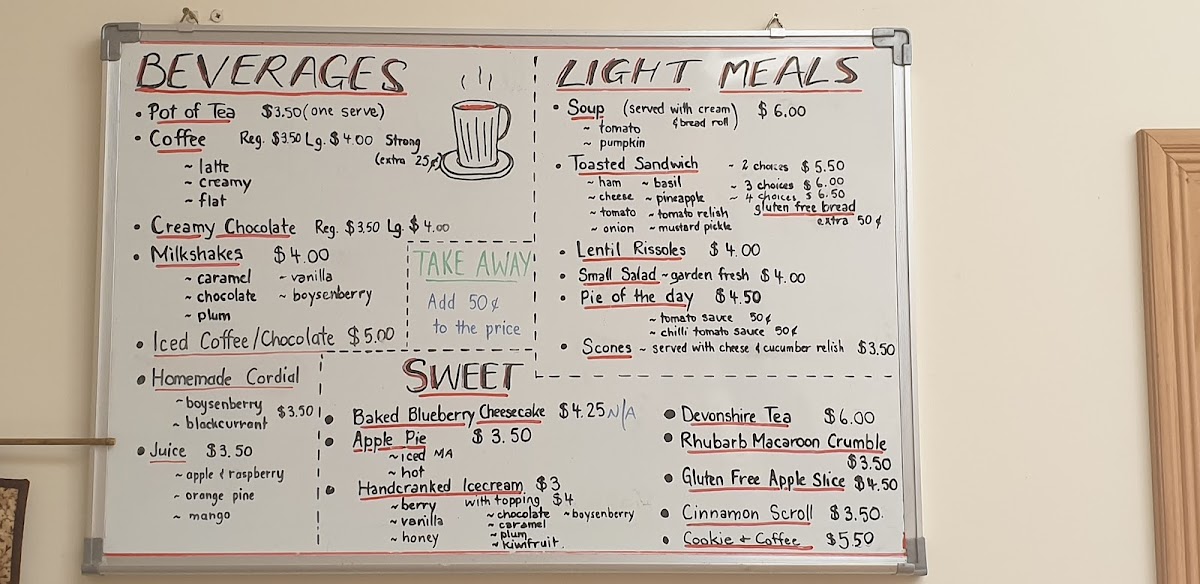 BEVERAGES
• Pot of Tea $3.50 (one serve)
• Coffee Reg. $3.50 Lg. $4.00 Strong
(extra 25¢)
~ latte
~ creamy
~ flat
• Creamy Chocolate Reg. $3.50 Lg. $4.00
• Milkshakes $4.00
~ caramel ~ vanilla
~ chocolate ~ boysenberry
~ plum
• Iced Coffee/Chocolate $5.00
• Homemade Cordial
~ boysenberry $3.50
~ blackcurrant
• Juice $3.50
~ apple & raspberry
~ orange pine
~ mango
TAKE AWAY
Add 50¢
to the price
LIGHT MEALS
• Soup (served with cream $6.00
& bread roll)
~ tomato
~ pumpkin
• Toasted Sandwich ~ 2 choices $5.50
~ ham ~ basil ~ 3 choices $6.00
~ cheese ~ pineapple ~ 4 choices $6.50
~ tomato ~ tomato relish gluten free bread
~ onion ~ mustard pickle extra 50¢
• Lentil Rissoles $4.00
• Small Salad ~ garden fresh $4.00
• Pie of the day $4.50
~ tomato sauce 50¢
~ chilli tomato sauce 50¢
• Scones ~ served with cheese & cucumber relish $3.50
SWEET
• Baked Blueberry Cheesecake $4.25 N/A
• Apple Pie $3.50
~ iced MA
~ hot
• Handcranked Icecream $3
~ berry with topping $4
~ vanilla ~ chocolate ~ boysenberry
~ honey ~ caramel
~ plum
~ kiwifruit
• Devonshire Tea $6.00
• Rhubarb Macaroon Crumble
$3.50
• Gluten Free Apple Slice $4.50
• Cinnamon Scroll $3.50
• Cookie + Coffee $5.50